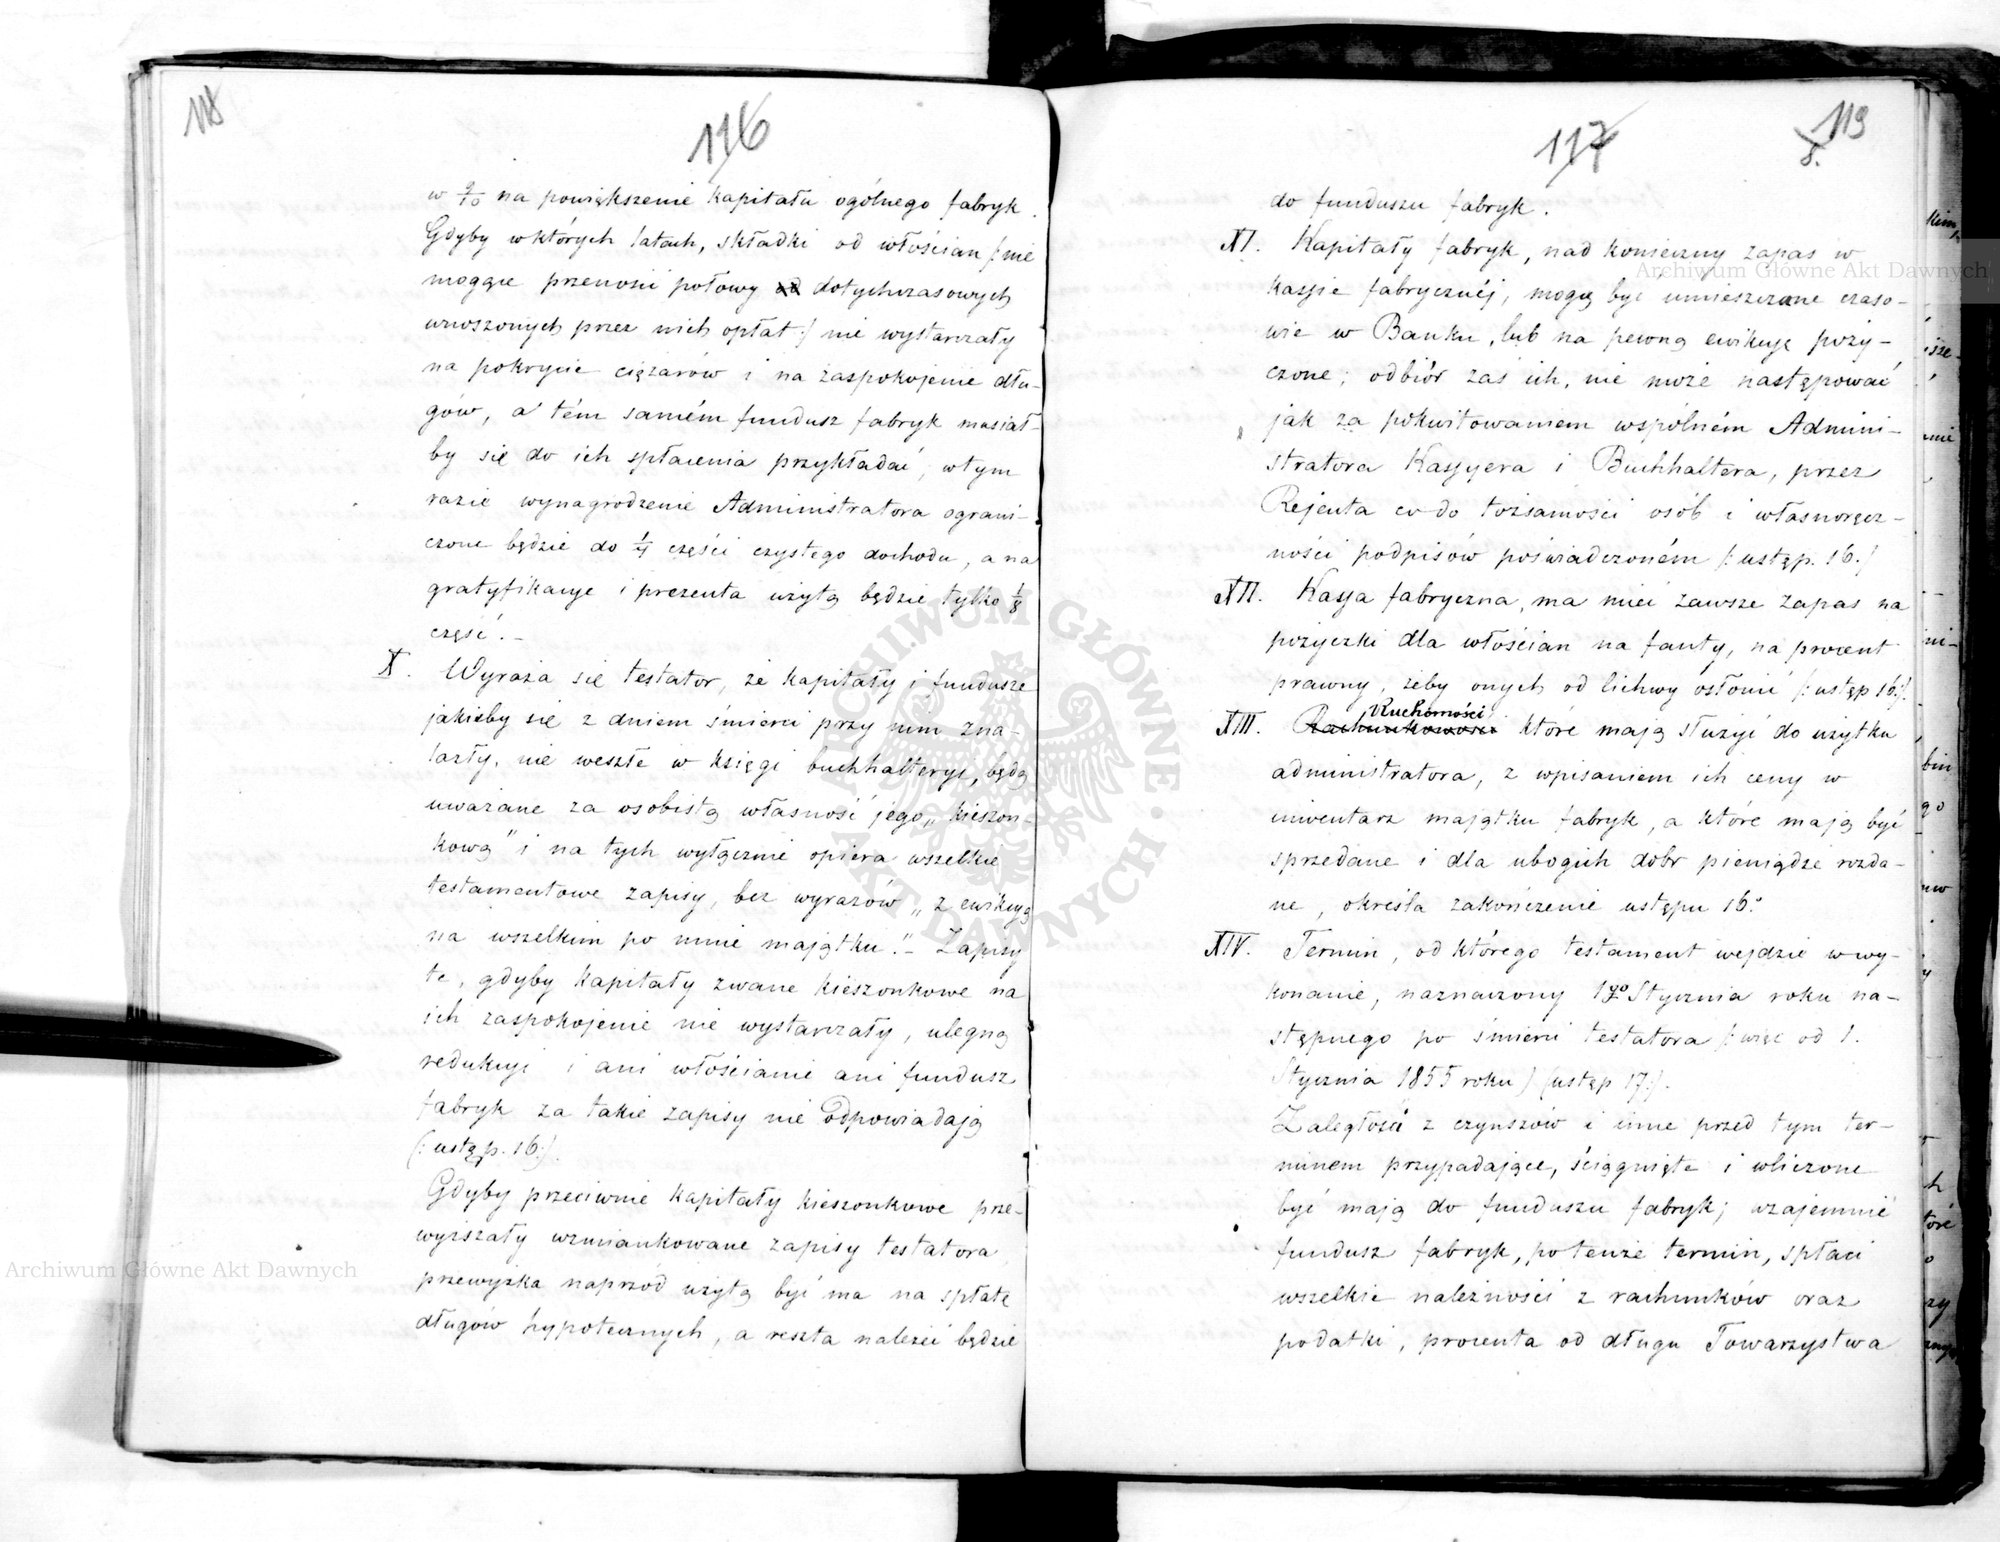 118
116
w 9/10 na powiększenie kapitału ogólnego fabryk.
Gdyby w których latach, składki od włościan /: nie
mogące przenosić połowy dotychczasowych
wnoszonych przez nich opłat :/ nie wystarczały
na pokrycie ciężarów i na zaspokojenie dłu-
gów, a tém samém fundusz fabryk musiał-
by się do ich spłacenia przykładać, w tym
razie wynagrodzenie Administratora ograni-
czone będzie do 1/4 części czystego dochodu, a na
gratyfikacye i prezenta użytą będzie tylko 1/8
część. –
X. Wyraża się testator, że kapitały i fundusze
jakieby się z dniem śmierci przy nim zna-
lazły, nie weszłe w księgi buchhalteryi, będą
uważane za osobistą własność jego „kieszon-
kową" i na tych wyłącznie opiera wszelkie
testamentowe zapisy, bez wyrazów „z ewikcyą
na wszelkim po mnie majątku." – Zapisy
te, gdyby kapitały zwane kieszonkowe na
ich zaspokojenie nie wystarczały, ulegną
redukcyi i ani włościanie ani fundusz
fabryk za takie zapisy nie odpowiadają
(: ustęp. 16:).
Gdyby przeciwnie kapitały kieszonkowe prze-
wyższały wzmiankowane zapisy testatora
przewyżka naprzód użytą być ma na spłatę
długów hypotecznych, a reszta należeć będzie
117
119
8.
do funduszu fabryk.
XI. Kapitały fabryk, nad konieczny zapas w
kassie fabrycznéj, mogą być umieszczane czaso-
wie w Banku, lub na pewną ewikcyę poży-
czone; odbiór zaś ich, nie może następować
jak za pokwitowaniem wspólném Admini-
stratora Kassyera i Buchhaltera, przez
Rejenta co do tożsamości osób i własnoręcz-
ności podpisów poświadczoném /: ustęp. 16./
XII. Kassa fabryczna, ma mieć zawsze zapas na
pożyczki dla włościan na fanty, na procent
prawny, żeby onych od lichwy osłonić /: ustęp 16:/.
Ruchomości
XIII. Rachunkowości które mają służyć do użytku
administratora, z wpisaniem ich ceny w
inwentarz majątku fabryk, a które mają być
sprzedane i dla ubogich dóbr pieniądze rozda-
ne, określa zakończenie ustępu 16.º
XIV. Termin, od którego testament wejdzie w wy-
konanie, naznaczony 1go Stycznia roku na-
stępnego po śmierci testatora /: więc od 1.
Stycznia 1855 roku) (ustęp 17:).
Zaległości z czynszów i inne przed tym ter-
minem przypadające, ściągnięte i wliczone
być mają do funduszu fabryk; wzajemnie
fundusz fabryk, po tenże termin, spłaci
wszelkie należności z rachunków oraz
podatki, procenta od długu Towarzystwa
Archiwum Główne Akt Dawnych
Archiwum Główne Akt Dawnych
ARCHIWUM GŁÓWNE · AKT DAWNYCH ·